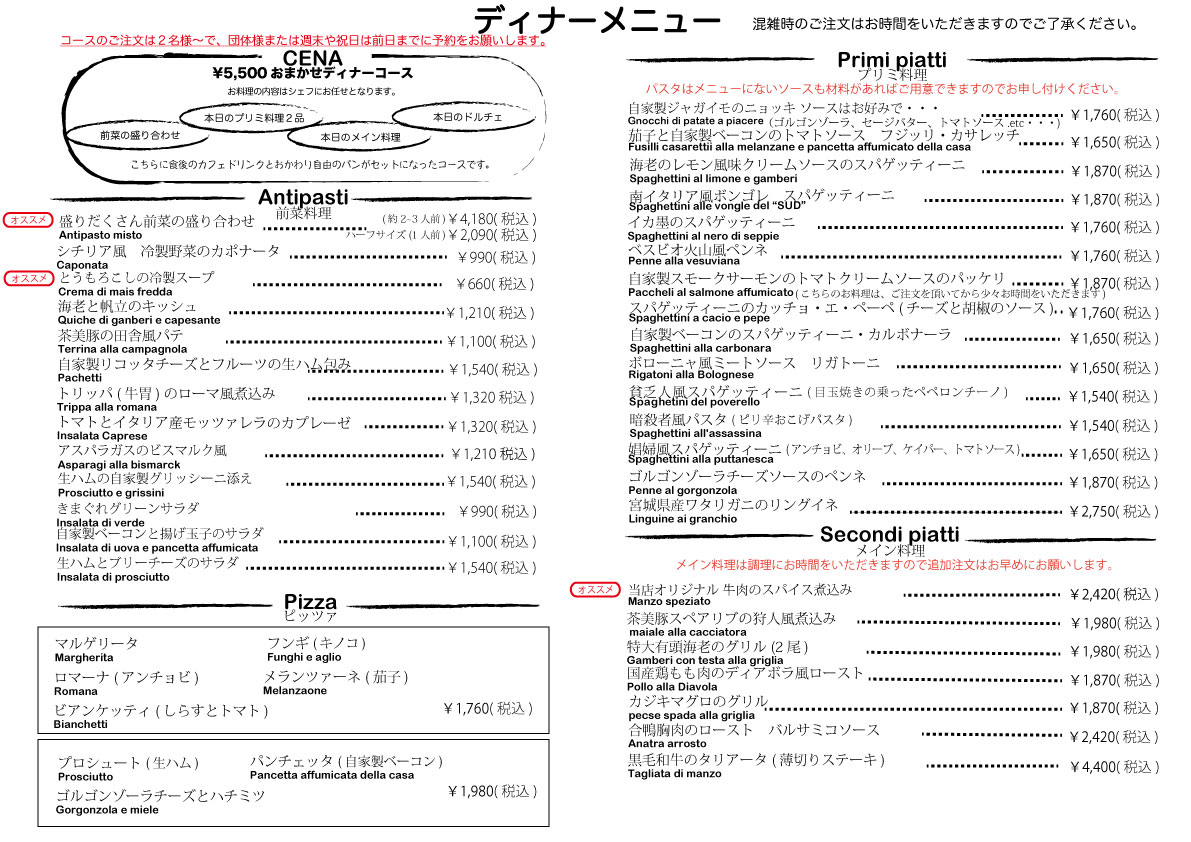 ディナーメニュー
混雑時のご注文はお時間をいただきますのでご了承ください。
コースのご注文は２名様〜で、団体様または週末や祝日は前日までに予約をお願いします。
CENA
¥5,500 おまかせディナーコース
お料理の内容はシェフにお任せとなります。
前菜の盛り合わせ
本日のプリミ料理２品
本日のメイン料理
本日のドルチェ
こちらに食後のカフェドリンクとおかわり自由のパンがセットになったコースです。
Antipasti
前菜料理
オススメ 盛りだくさん前菜の盛り合わせ (約 2-3 人前) ¥4,180( 税込 )
Antipasto misto ハーフサイズ (1 人前) ¥2,090( 税込 )
シチリア風　冷製野菜のカポナータ ¥990( 税込 )
Caponata
オススメ とうもろこしの冷製スープ ¥660( 税込 )
Crema di mais fredda
海老と帆立のキッシュ ¥1,210( 税込 )
Quiche di ganberi e capesante
茶美豚の田舎風パテ ¥1,100( 税込 )
Terrina alla campagnola
自家製リコッタチーズとフルーツの生ハム包み ¥1,540( 税込 )
Pachetti
トリッパ ( 牛胃 ) のローマ風煮込み ¥1,320 税込 )
Trippa alla romana
トマトとイタリア産モッツァレラのカプレーゼ ¥1,320( 税込 )
Insalata Caprese
アスパラガスのビスマルク風 ¥1,210 税込 )
Asparagi alla bismarck
生ハムの自家製グリッシーニ添え ¥1,540( 税込 )
Prosciutto e grissini
きまぐれグリーンサラダ ¥990( 税込 )
Insalata di verde
自家製ベーコンと揚げ玉子のサラダ ¥1,100( 税込 )
Insalata di uova e pancetta affumicata
生ハムとブリーチーズのサラダ ¥1,540( 税込 )
Insalata di prosciutto
Pizza
ピッツァ
マルゲリータ フンギ ( キノコ )
Margherita Funghi e aglio
ロマーナ ( アンチョビ ) メランツァーネ ( 茄子 )
Romana Melanzaone
ビアンケッティ ( しらすとトマト ) ¥1,760( 税込 )
Bianchetti
プロシュート ( 生ハム ) パンチェッタ ( 自家製ベーコン )
Prosciutto Pancetta affumicata della casa
ゴルゴンゾーラチーズとハチミツ ¥1,980( 税込 )
Gorgonzola e miele
Primi piatti
プリミ料理
パスタはメニューにないソースも材料があればご用意できますのでお申し付けください。
自家製ジャガイモのニョッキ ソースはお好みで・・・ ¥1,760( 税込 )
Gnocchi di patate a piacere (ゴルゴンゾーラ、セージバター、トマトソース .etc・・・)
茄子と自家製ベーコンのトマトソース　フジッリ・カサレッチ ¥1,650( 税込 )
Fusilli casarettii alla melanzane e pancetta affumicato della casa
海老のレモン風味クリームソースのスパゲッティーニ ¥1,870( 税込 )
Spaghettini al limone e gamberi
南イタリア風ボンゴレ　スパゲッティーニ ¥1,870( 税込 )
Spaghettini alle vongle del “SUD”
イカ墨のスパゲッティーニ ¥1,760( 税込 )
Spaghettini al nero di seppie
ベスビオ火山風ペンネ ¥1,760( 税込 )
Penne alla vesuviana
自家製スモークサーモンのトマトクリームソースのパッケリ ¥1,870( 税込 )
Paccheli al salmone affumicato ( こちらのお料理は、ご注文を頂いてから少々お時間をいただきます )
スパゲッティーニのカッチョ・エ・ペーペ ( チーズと胡椒のソース ) ¥1,760( 税込 )
Spaghettini a cacio e pepe
自家製ベーコンのスパゲッティーニ・カルボナーラ ¥1,650( 税込 )
Spaghettini alla carbonara
ボローニャ風ミートソース　リガトーニ ¥1,650( 税込 )
Rigatoni alla Bolognese
貧乏人風スパゲッティーニ ( 目玉焼きの乗ったペペロンチーノ ) ¥1,540( 税込 )
Spaghetini del poverello
暗殺者風パスタ ( ピリ辛おこげパスタ ) ¥1,540( 税込 )
Spaghettini all'assassina
娼婦風スパゲッティーニ (アンチョビ、オリーブ、ケイパー、トマトソース) ¥1,650( 税込 )
Spaghettini alla puttanesca
ゴルゴンゾーラチーズソースのペンネ ¥1,870( 税込 )
Penne al gorgonzola
宮城県産ワタリガニのリングイネ ¥2,750( 税込 )
Linguine ai granchio
Secondi piatti
メイン料理
メイン料理は調理にお時間をいただきますので追加注文はお早めにお願いします。
オススメ 当店オリジナル 牛肉のスパイス煮込み ¥2,420( 税込 )
Manzo speziato
茶美豚スペアリブの狩人風煮込み ¥1,980( 税込 )
maiale alla cacciatora
特大有頭海老のグリル (2 尾 ) ¥1,980( 税込 )
Gamberi con testa alla griglia
国産鶏もも肉のディアボラ風ロースト ¥1,870( 税込 )
Pollo alla Diavola
カジキマグロのグリル ¥1,870( 税込 )
pecse spada alla griglia
合鴨胸肉のロースト　バルサミコソース ¥2,420( 税込 )
Anatra arrosto
黒毛和牛のタリアータ ( 薄切りステーキ ) ¥4,400( 税込 )
Tagliata di manzo